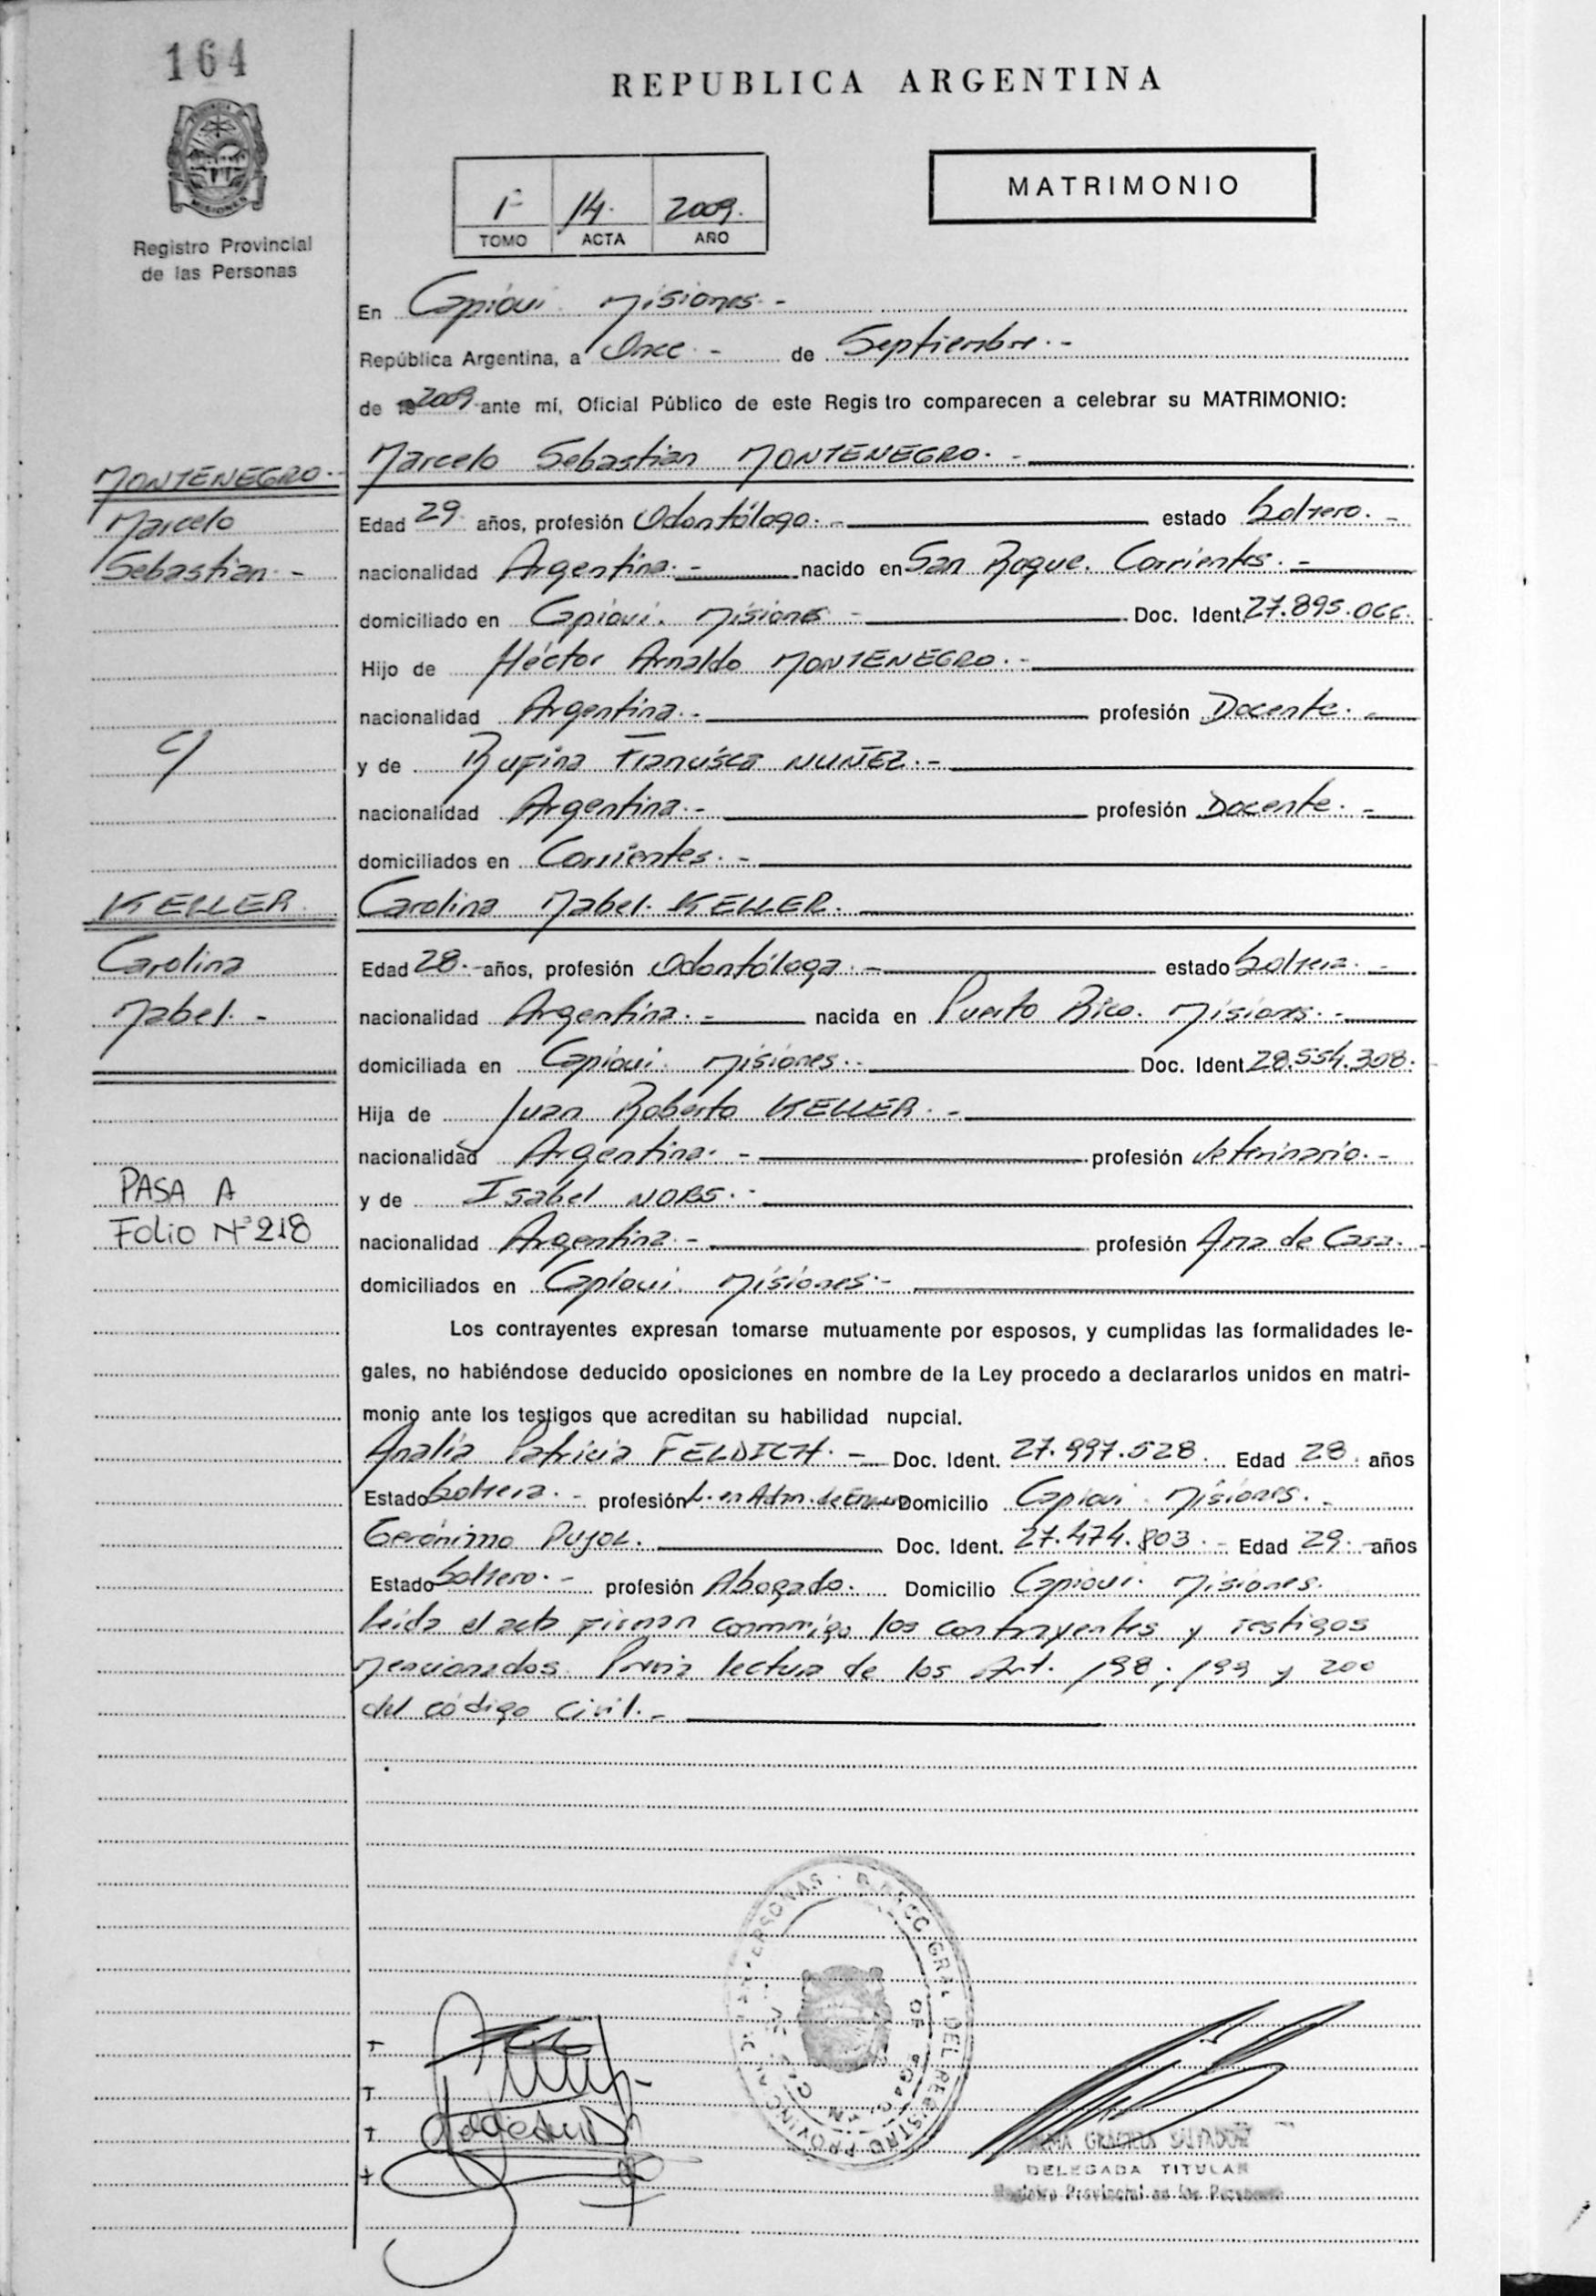 164
REPUBLICA ARGENTINA
MISIONES
Registro Provincial
de las Personas
1º 14. 2009.
TOMO ACTA AÑO
MATRIMONIO
En Capioví. Misiones.-
República Argentina, a Once.- de Septiembre.-
de 2009 ante mí, Oficial Público de este Regis tro comparecen a celebrar su MATRIMONIO:
MONTENEGRO.-
Marcelo
Sebastian.-
Marcelo Sebastian MONTENEGRO.-
Edad 29 años, profesión Odontólogo.- estado Soltero.-
nacionalidad Argentina.- nacido en San Roque. Corrientes.-
domiciliado en Capioví. Misiones.- Doc. Ident. 27.895.066.
Hijo de Héctor Arnaldo MONTENEGRO.-
nacionalidad Argentina.- profesión Docente.-
c/
y de Rufina Francisca NUÑEZ.-
nacionalidad Argentina.- profesión Docente.-
domiciliados en Corrientes.-
KELLER.
Carolina
Mabel.-
Carolina Mabel. KELLER.
Edad 28.- años, profesión Odontóloga.- estado Soltera.-
nacionalidad Argentina.- nacida en Puerto Rico. Misiones.-
domiciliada en Capioví. Misiones.- Doc. Ident. 28.554.308.
Hija de Juan Roberto KELLER.-
nacionalidad Argentina.- profesión Veterinario.-
PASA A
Folio Nº 218
y de Isabel NOBS.-
nacionalidad Argentina.- profesión Ama de Casa.-
domiciliados en Capioví. Misiones.-
Los contrayentes expresan tomarse mutuamente por esposos, y cumplidas las formalidades le-
gales, no habiéndose deducido oposiciones en nombre de la Ley procedo a declararlos unidos en matri-
monio ante los testigos que acreditan su habilidad nupcial.
Analía Patricia FELDICH.- Doc. Ident. 27.997.528. Edad 28. años
Estado Soltera.- profesión L. en Adm. de Domicilio Capioví. Misiones.-
Gerónimo PUJOL. Doc. Ident. 27.474.803.- Edad 29.- años
Estado Soltero.- profesión Abogado. Domicilio Capioví. Misiones.
Leida el acta firman conmigo los contrayentes y testigos
mencionados. Previa lectura de los Art. 198. 199 y 200
del código Civil.-
GRACIELA SALVADOR
DELEGADA TITULAR
Registro Provincial de las Personas